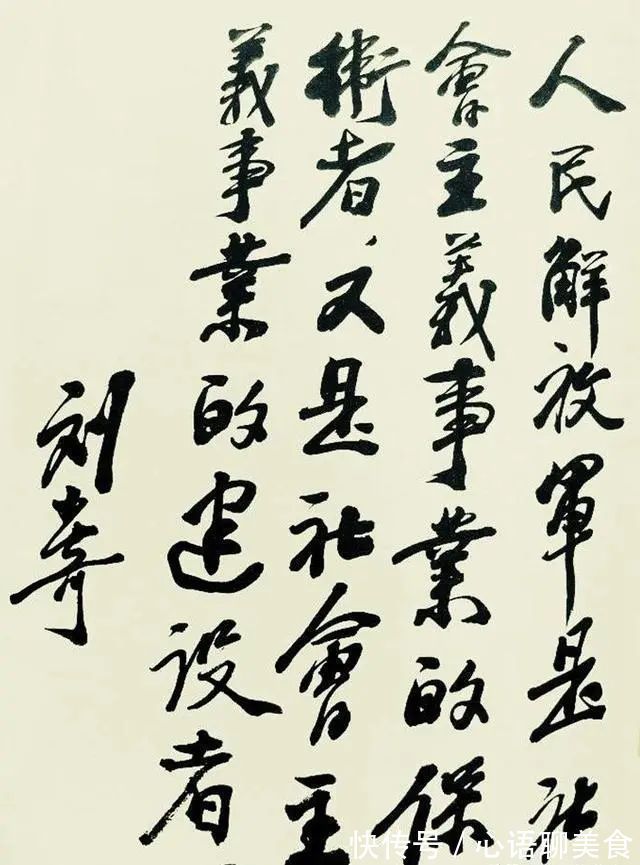 人民解放軍是社
會主義事業的保
衛者，又是社會主
義事業的建设者
刘少奇
快传号 / 心语聊美食